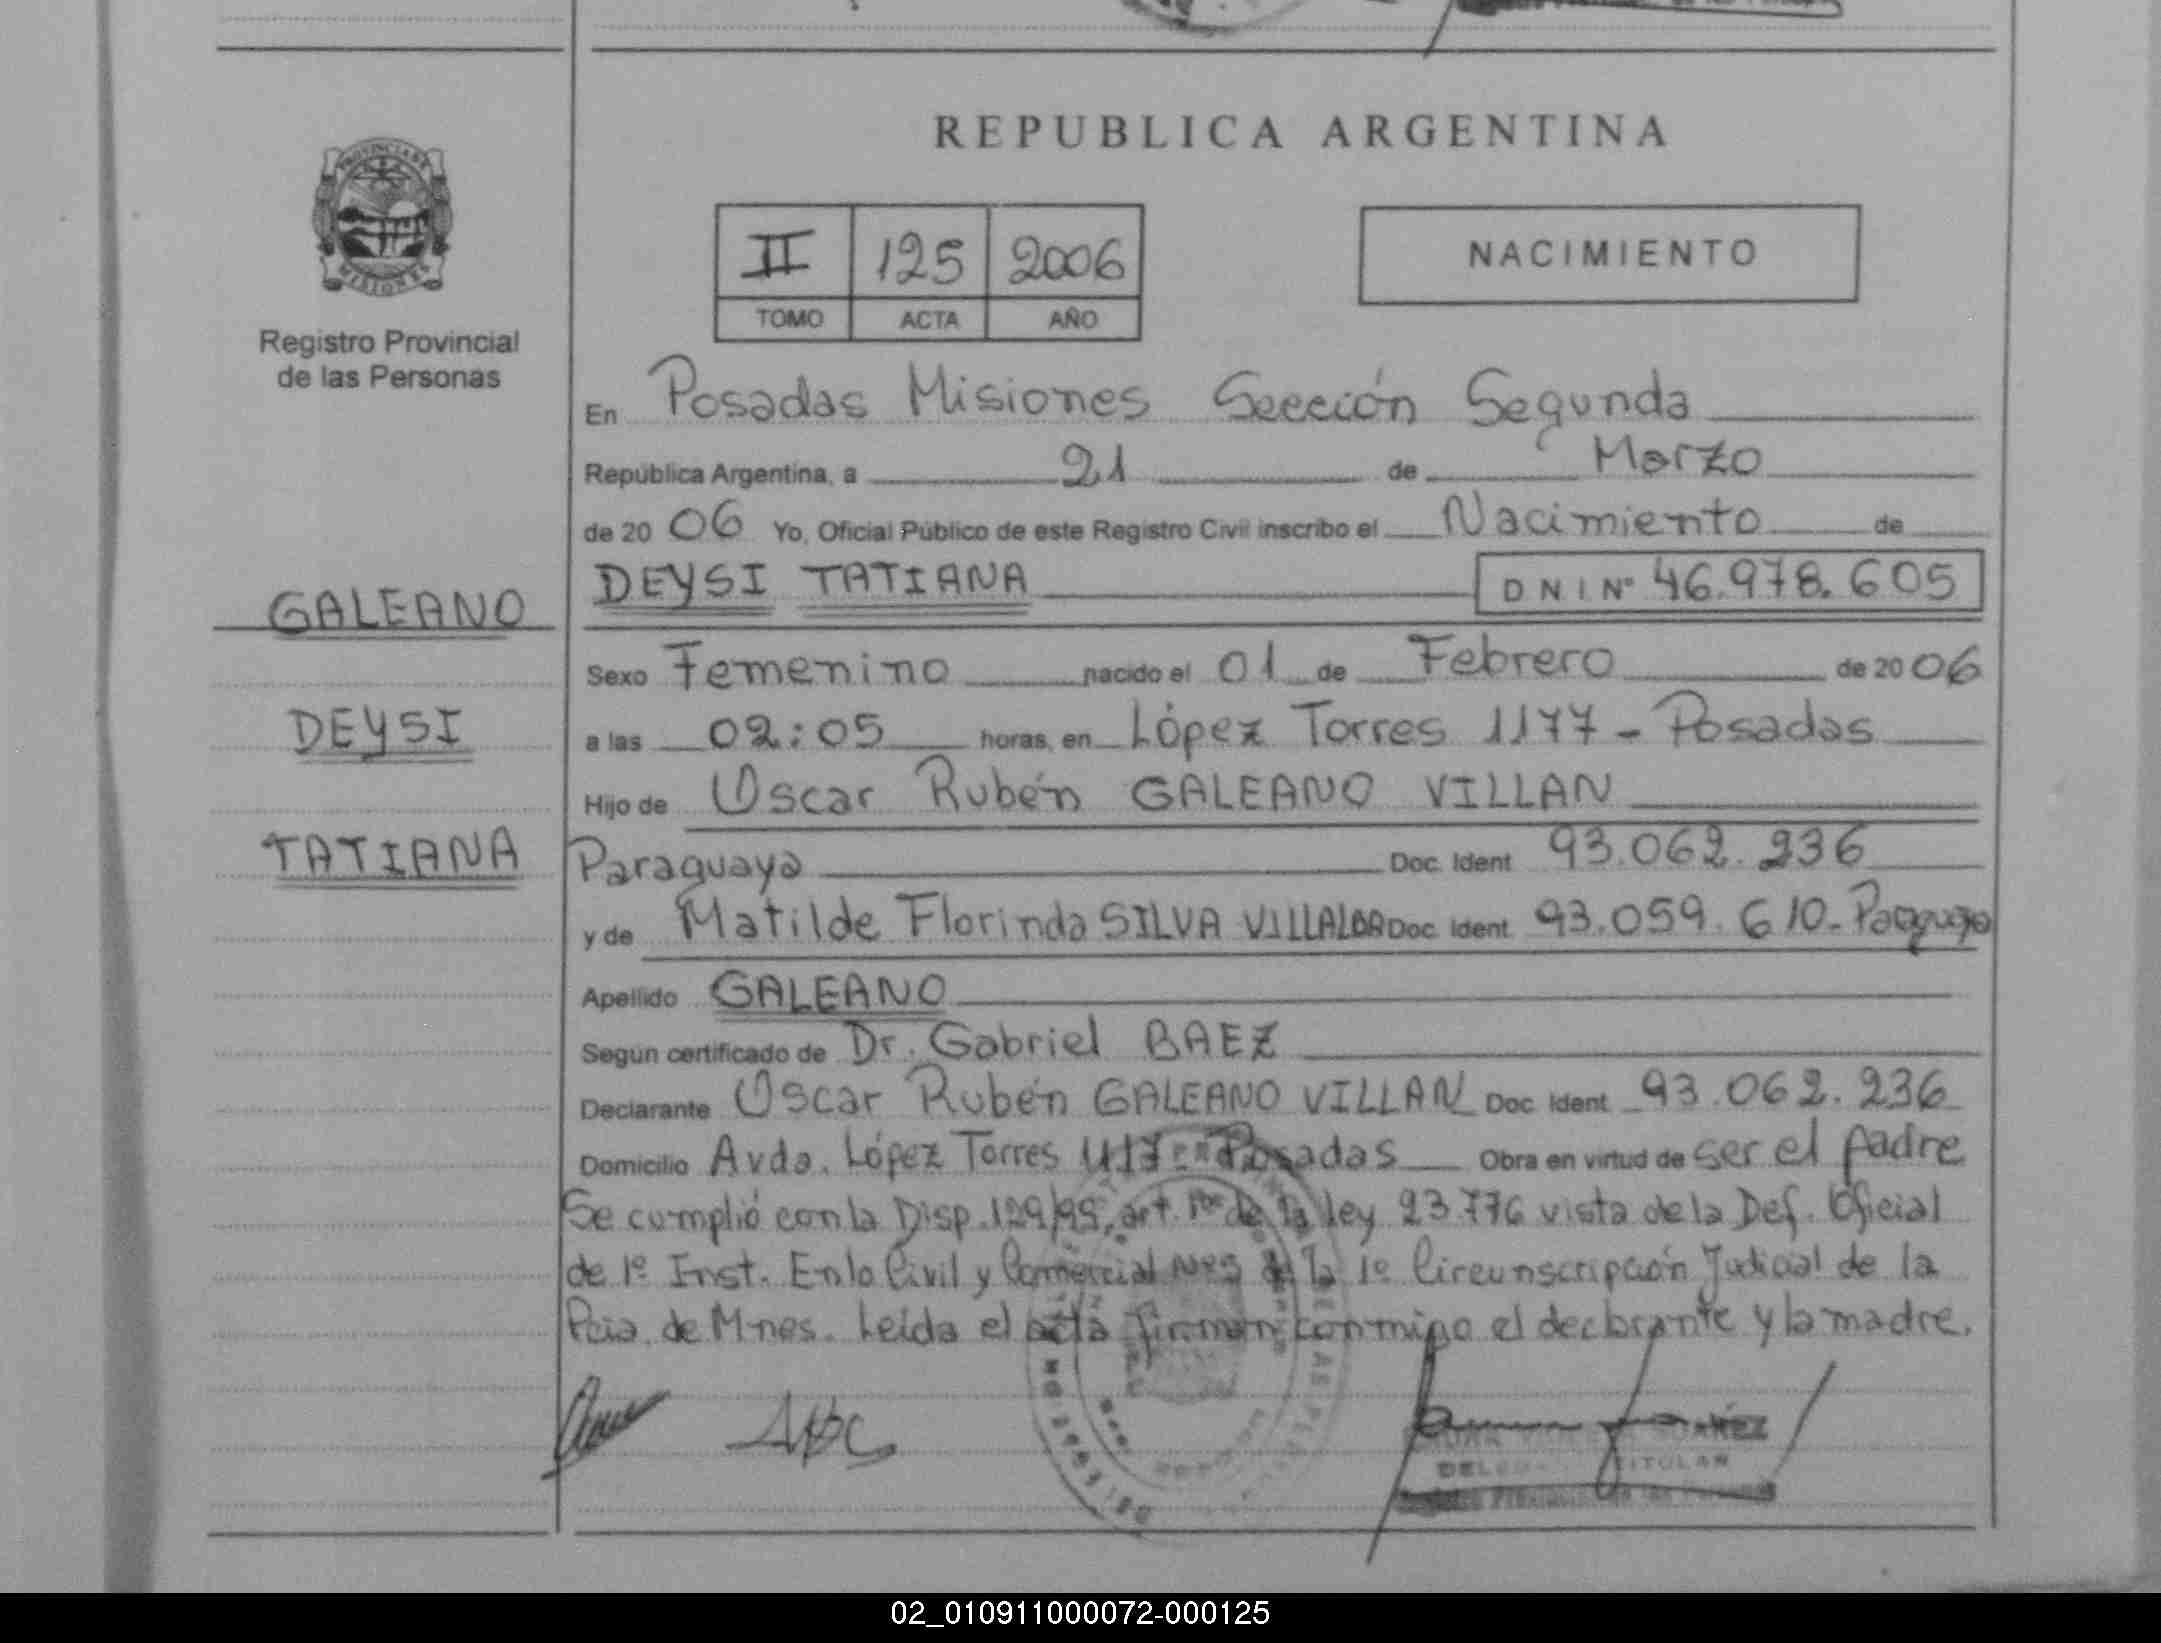 REPUBLICA ARGENTINA
PROVINCIA DE
MISIONES
Registro Provincial
de las Personas
GALEANO
DEYSI
TATIANA
II 125 2006
TOMO ACTA AÑO
NACIMIENTO
En Posadas Misiones Sección Segunda
República Argentina, a 21 de Marzo
de 20 06 Yo, Oficial Público de este Registro Civil inscribo el Nacimiento de
DEYSI TATIANA D N I Nº 46.978.605
Sexo Femenino nacido el 01 de Febrero de 20 06
a las 02:05 horas, en López Torres 1177 - Posadas
Hijo de Oscar Rubén GALEANO VILLAN
Paraguaya Doc. Ident 93.062.236
y de Matilde Florinda SILVA VILLALBA Doc. Ident. 93.059.610 - Paraguaya
Apellido GALEANO
Según certificado de Dr. Gabriel BAEZ
Declarante Oscar Rubén GALEANO VILLAN Doc. Ident 93.062.236
Domicilio Avda. López Torres 1177 - Posadas Obra en virtud de ser el padre
Se cumplió con la Disp. 129/99, art. de la ley 23.776 vista de la Def. Oficial
de 1º Inst. En lo Civil y Comercial de la 1º Circunscripción Judicial de la
Pcia. de Mnes. Leída el acta firman conmigo el declarante y la madre.
TITULAR
02_010911000072-000125